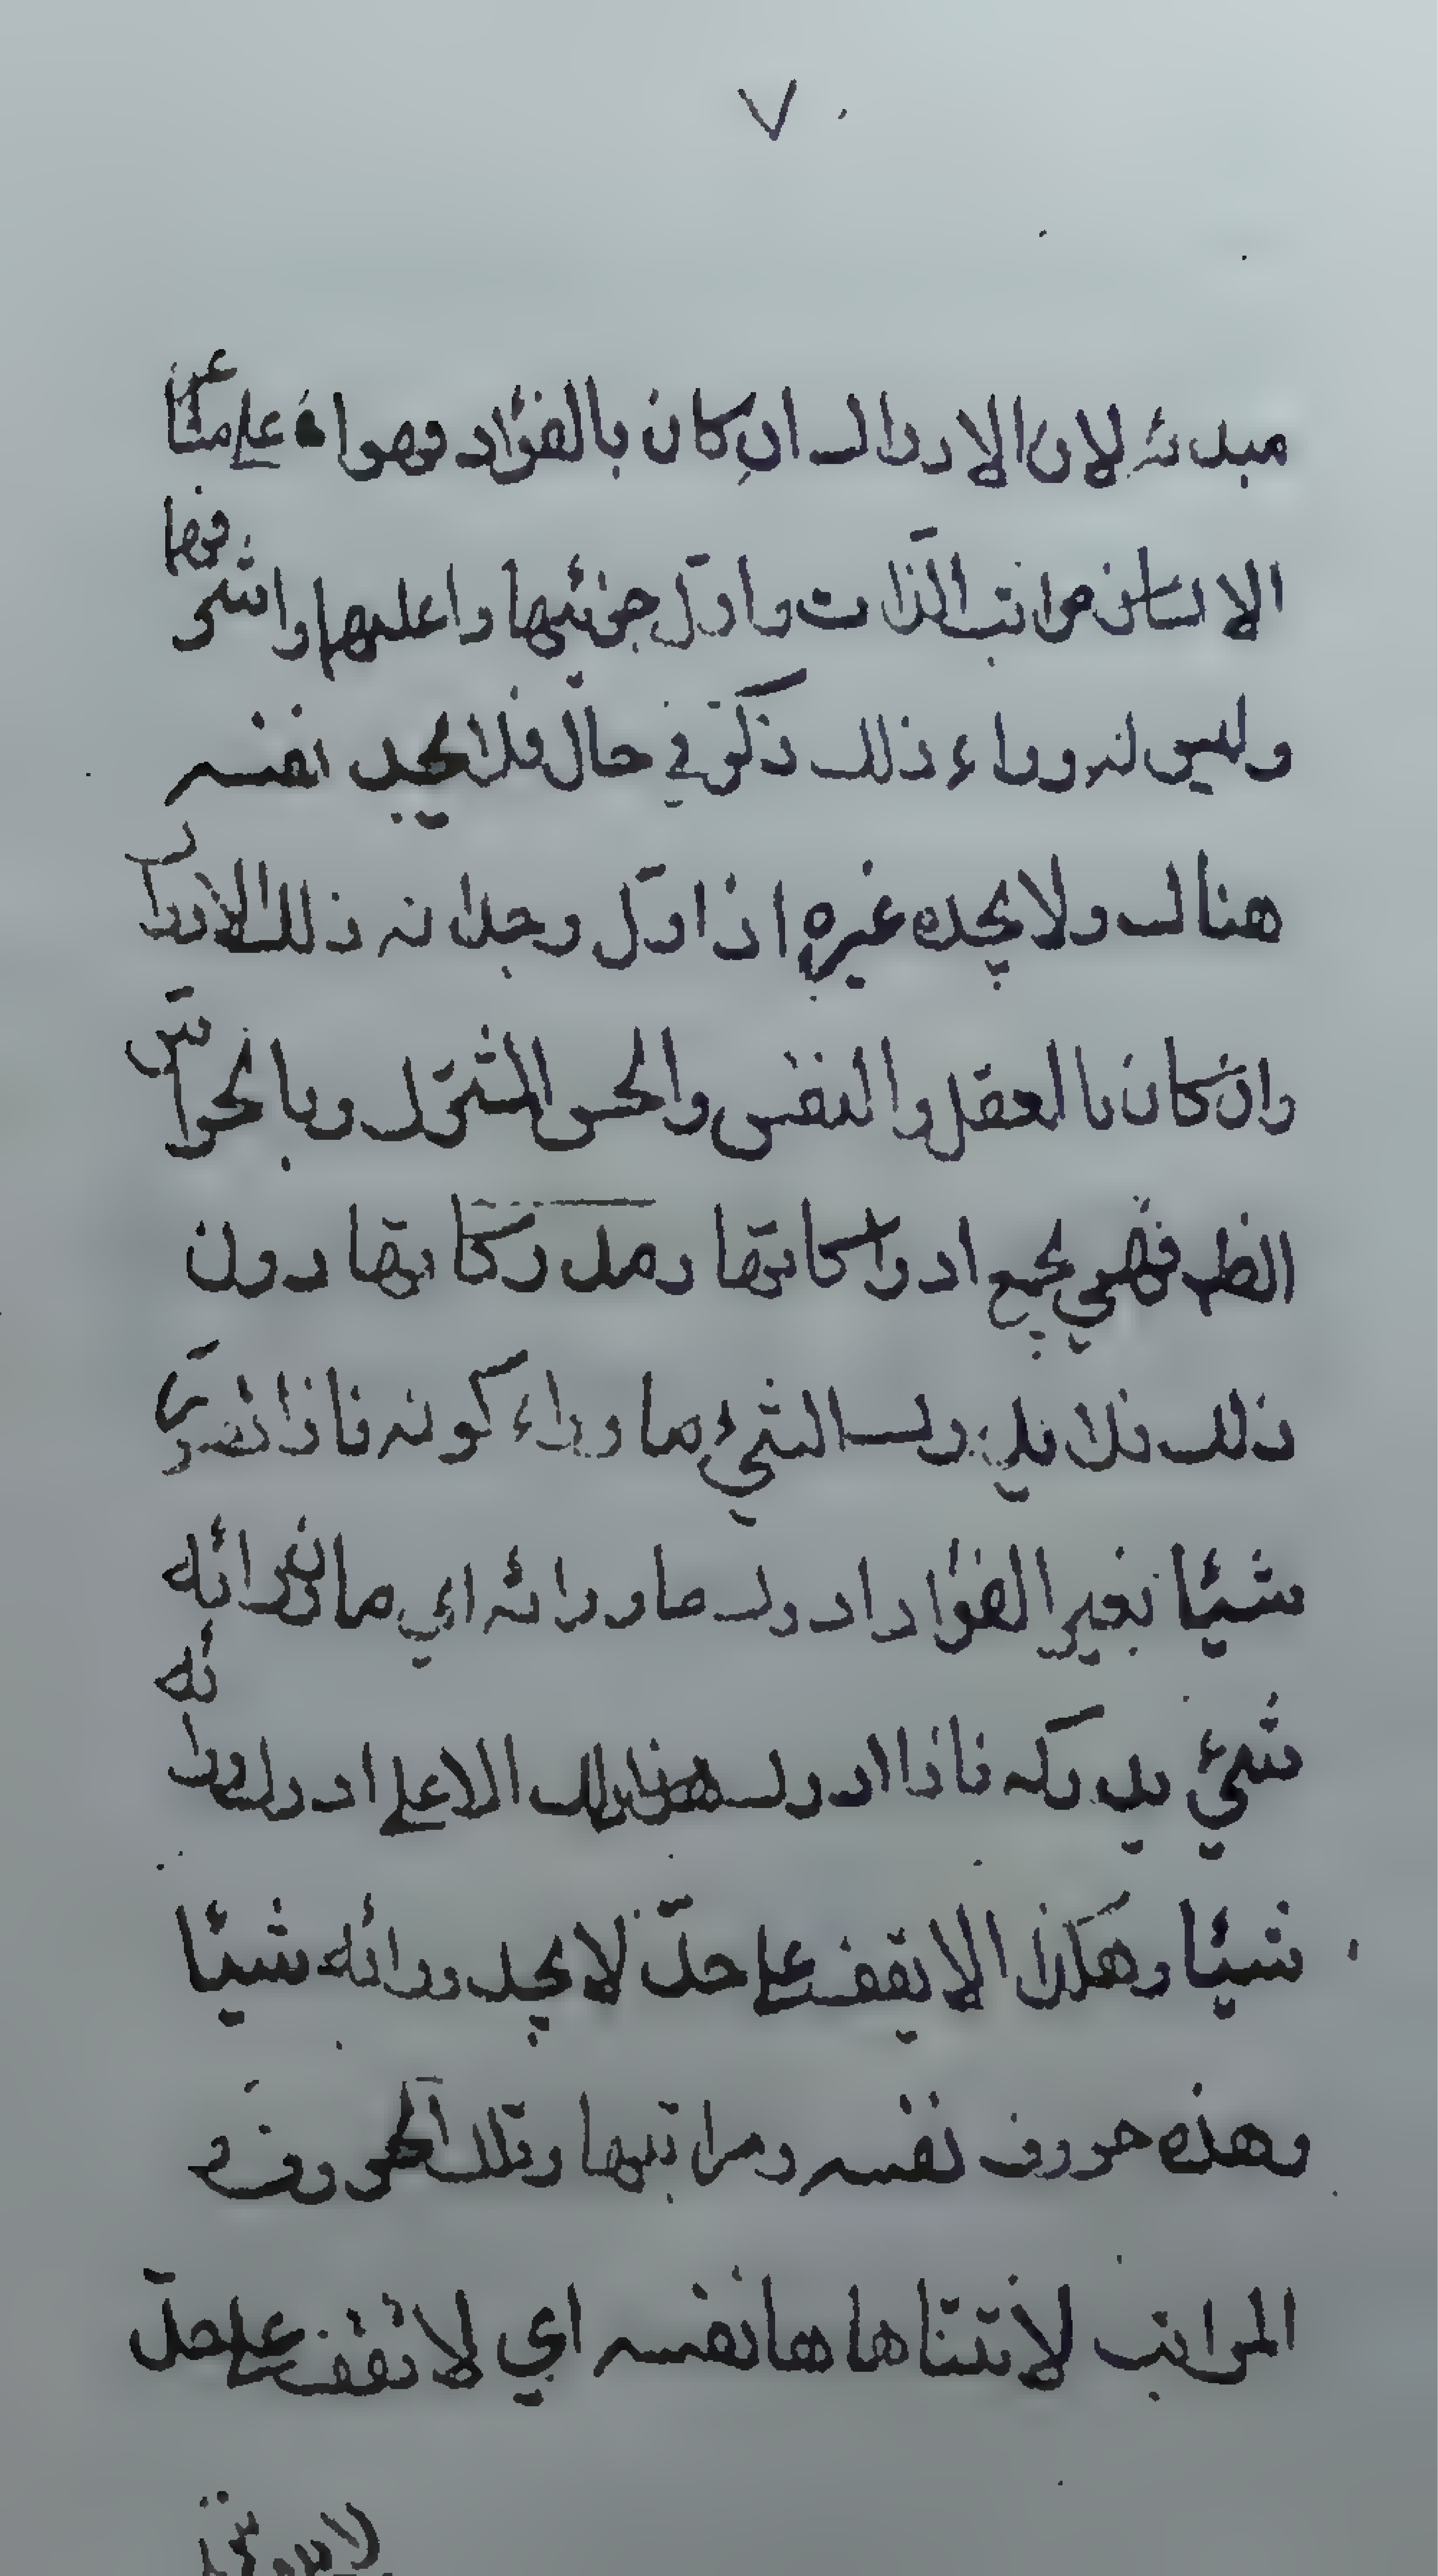 ٧
مبدئه لان الادراك ان كان بالفؤاد فهو اعلى مشاعر
الانسان مراتب الذات واول جزئيها واعليهما واشرفها
وليس له وراء ذلك ذكر في حال فلا يجد نفسه
هناك ولا يجده غيره اذ اول وجدانه ذلك الادراك
وان كان بالعقل والنفس والحس المشترك وبالحواس
الظ فهي بجميع ادراكاتها ومدركاتها دون
ذلك فلا يدرك الشئ ما وراء كونه فاذا تصور
شيئا بغير الفؤاد ادرك ما ورائه اي ما من ورائه
شئ يدركه فاذا ادرك هنالك الاعلى ادرك ورائه
شيئا وهكذا الا يقف على حدّ لا يجد ورائه شيئا
وهذه حروف نفسه ومراتبها وتلك الحروف و
المراتب لا تتناها ها نفسه اي لا تقف على حدّ